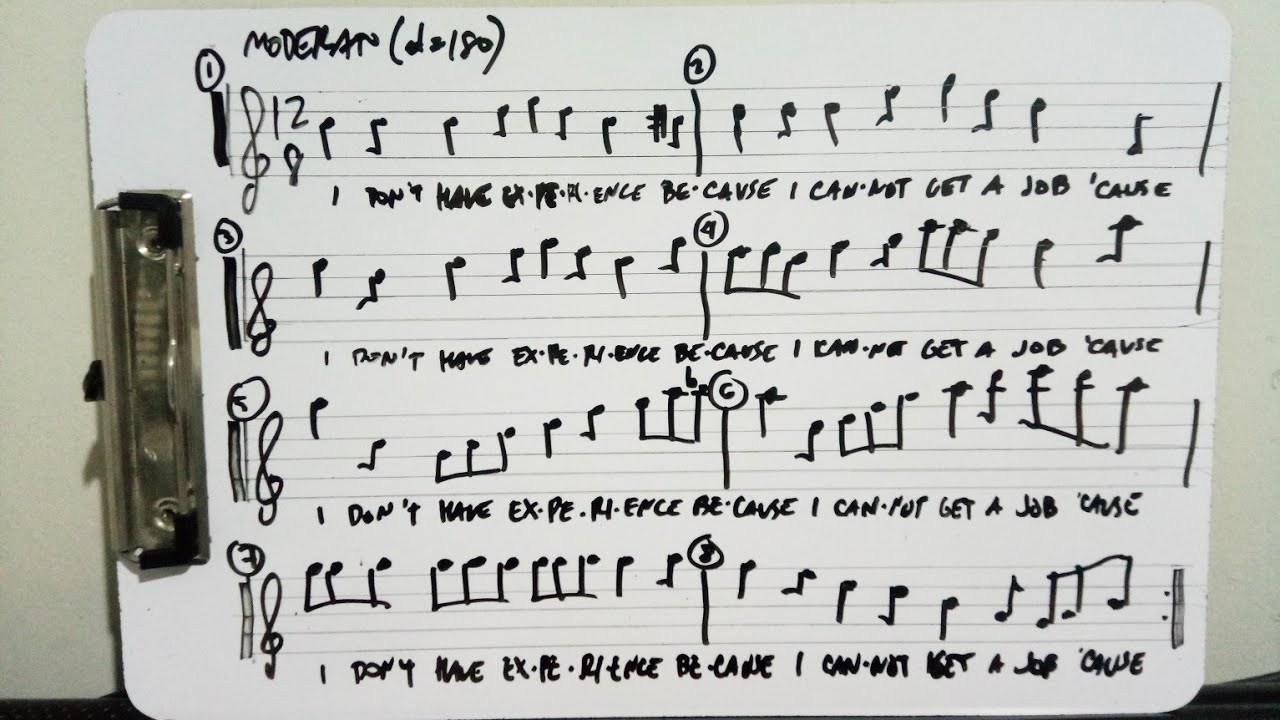 MODERATO (♩=180)
1 2
12
8
I DON'T HAVE EX·PE·RI·ENCE BE·CAUSE I CAN·NOT GET A JOB 'CAUSE
3 4
I DON'T HAVE EX·PE·RI·ENCE BE·CAUSE I CAN·NOT GET A JOB 'CAUSE
5 6
I DON'T HAVE EX·PE·RI·ENCE BE·CAUSE I CAN·NOT GET A JOB 'CAUSE
7 8
I DON'T HAVE EX·PE·RI·ENCE BE·CAUSE I CAN·NOT GET A JOB 'CAUSE